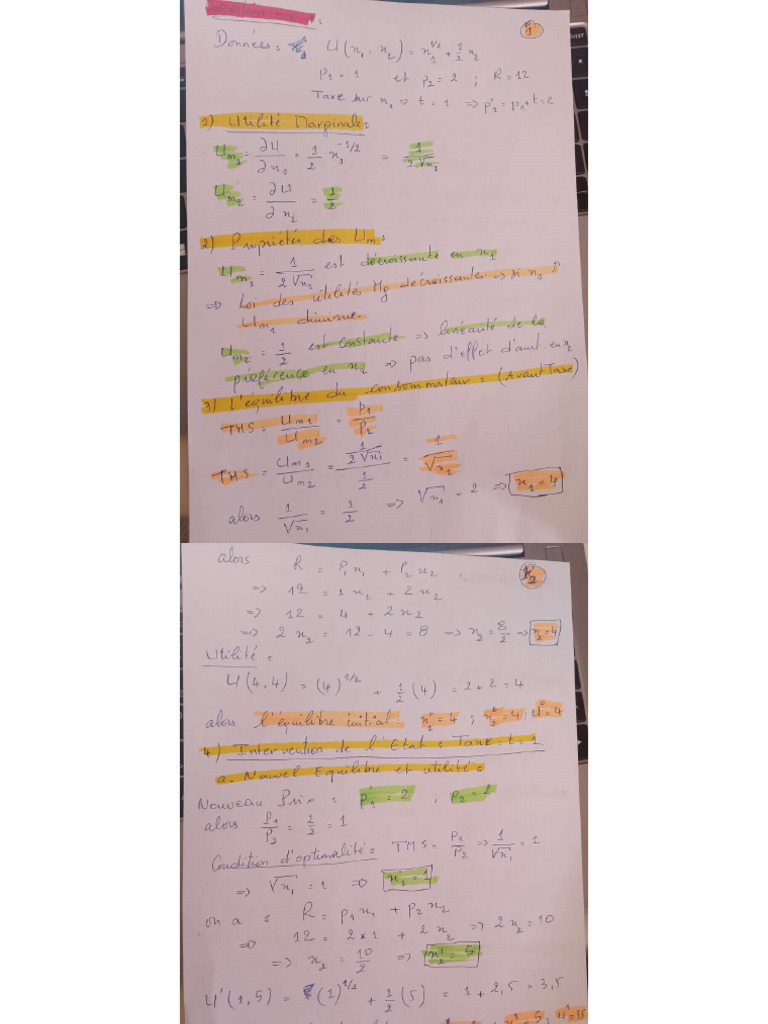 F1
Données : U(x₁, x₂) = x₁^1/2 + 1/2 x₂
P₁ = 1 et P₂ = 2 ; R = 12
Taxe sur x₁ => t = 1 => p'₂ = p₁ + t = 2
1) Utilité Marginale :
Um₁ = ∂U/∂x₁ = 1/2 x₁^-1/2 = 1/(2√x₁)
Um₂ = ∂U/∂x₂ = 1/2
2) Propriétés des Um :
Um₁ = 1/(2√x₁) est décroissante en x₁
=> Loi des utilités Mg décroissantes => si x₁ ↑
Um₁ diminue.
Um₂ = 1/2 est constante => linéarité de la
préférence en x₂ => pas d'effet d'aut en x₂
3) L'équilibre du consommateur : (Avant Taxe)
TMS = Um₁/Um₂ = P₁/P₂
TMS = Um₁/Um₂ = (1/(2√x₁))/(1/2) = 1/√x₁
alors 1/√x₁ = 1/2 => √x₁ = 2 => x₁ = 4
F2
alors R = P₁x₁ + P₂x₂
=> 12 = 1x₁ + 2x₂
=> 12 = 4 + 2x₂
=> 2x₂ = 12 - 4 = 8 => x₂ = 8/2 => x₂ = 4
Utilité :
U(4,4) = (4)^1/2 + 1/2 (4) = 2 + 2 = 4
alors l'équilibre initial x₁⁰ = 4 ; x₂⁰ = 4 ; U⁰ = 4
4) Intervention de l'Etat : Taxe = t = 1
a. Nouvel Equilibre et utilité :
Nouveau Prix : p'₁ = 2 ; P₂ = 2
alors P₁/P₂ = 2/2 = 1
Condition d'optimalité : TMS = P₁/P₂ => 1/√x₁ = 1
=> √x₁ = 1 => x'₁ = 1
on a : R = p₁x₁ + p₂x₂
=> 12 = 2*1 + 2x₂ => 2x₂ = 10
=> x₂ = 10/2 => x'₂ = 5
U'(1,5) = (1)^1/2 + 1/2 (5) = 1 + 2,5 = 3,5
= 5 ; U¹ = 3,5